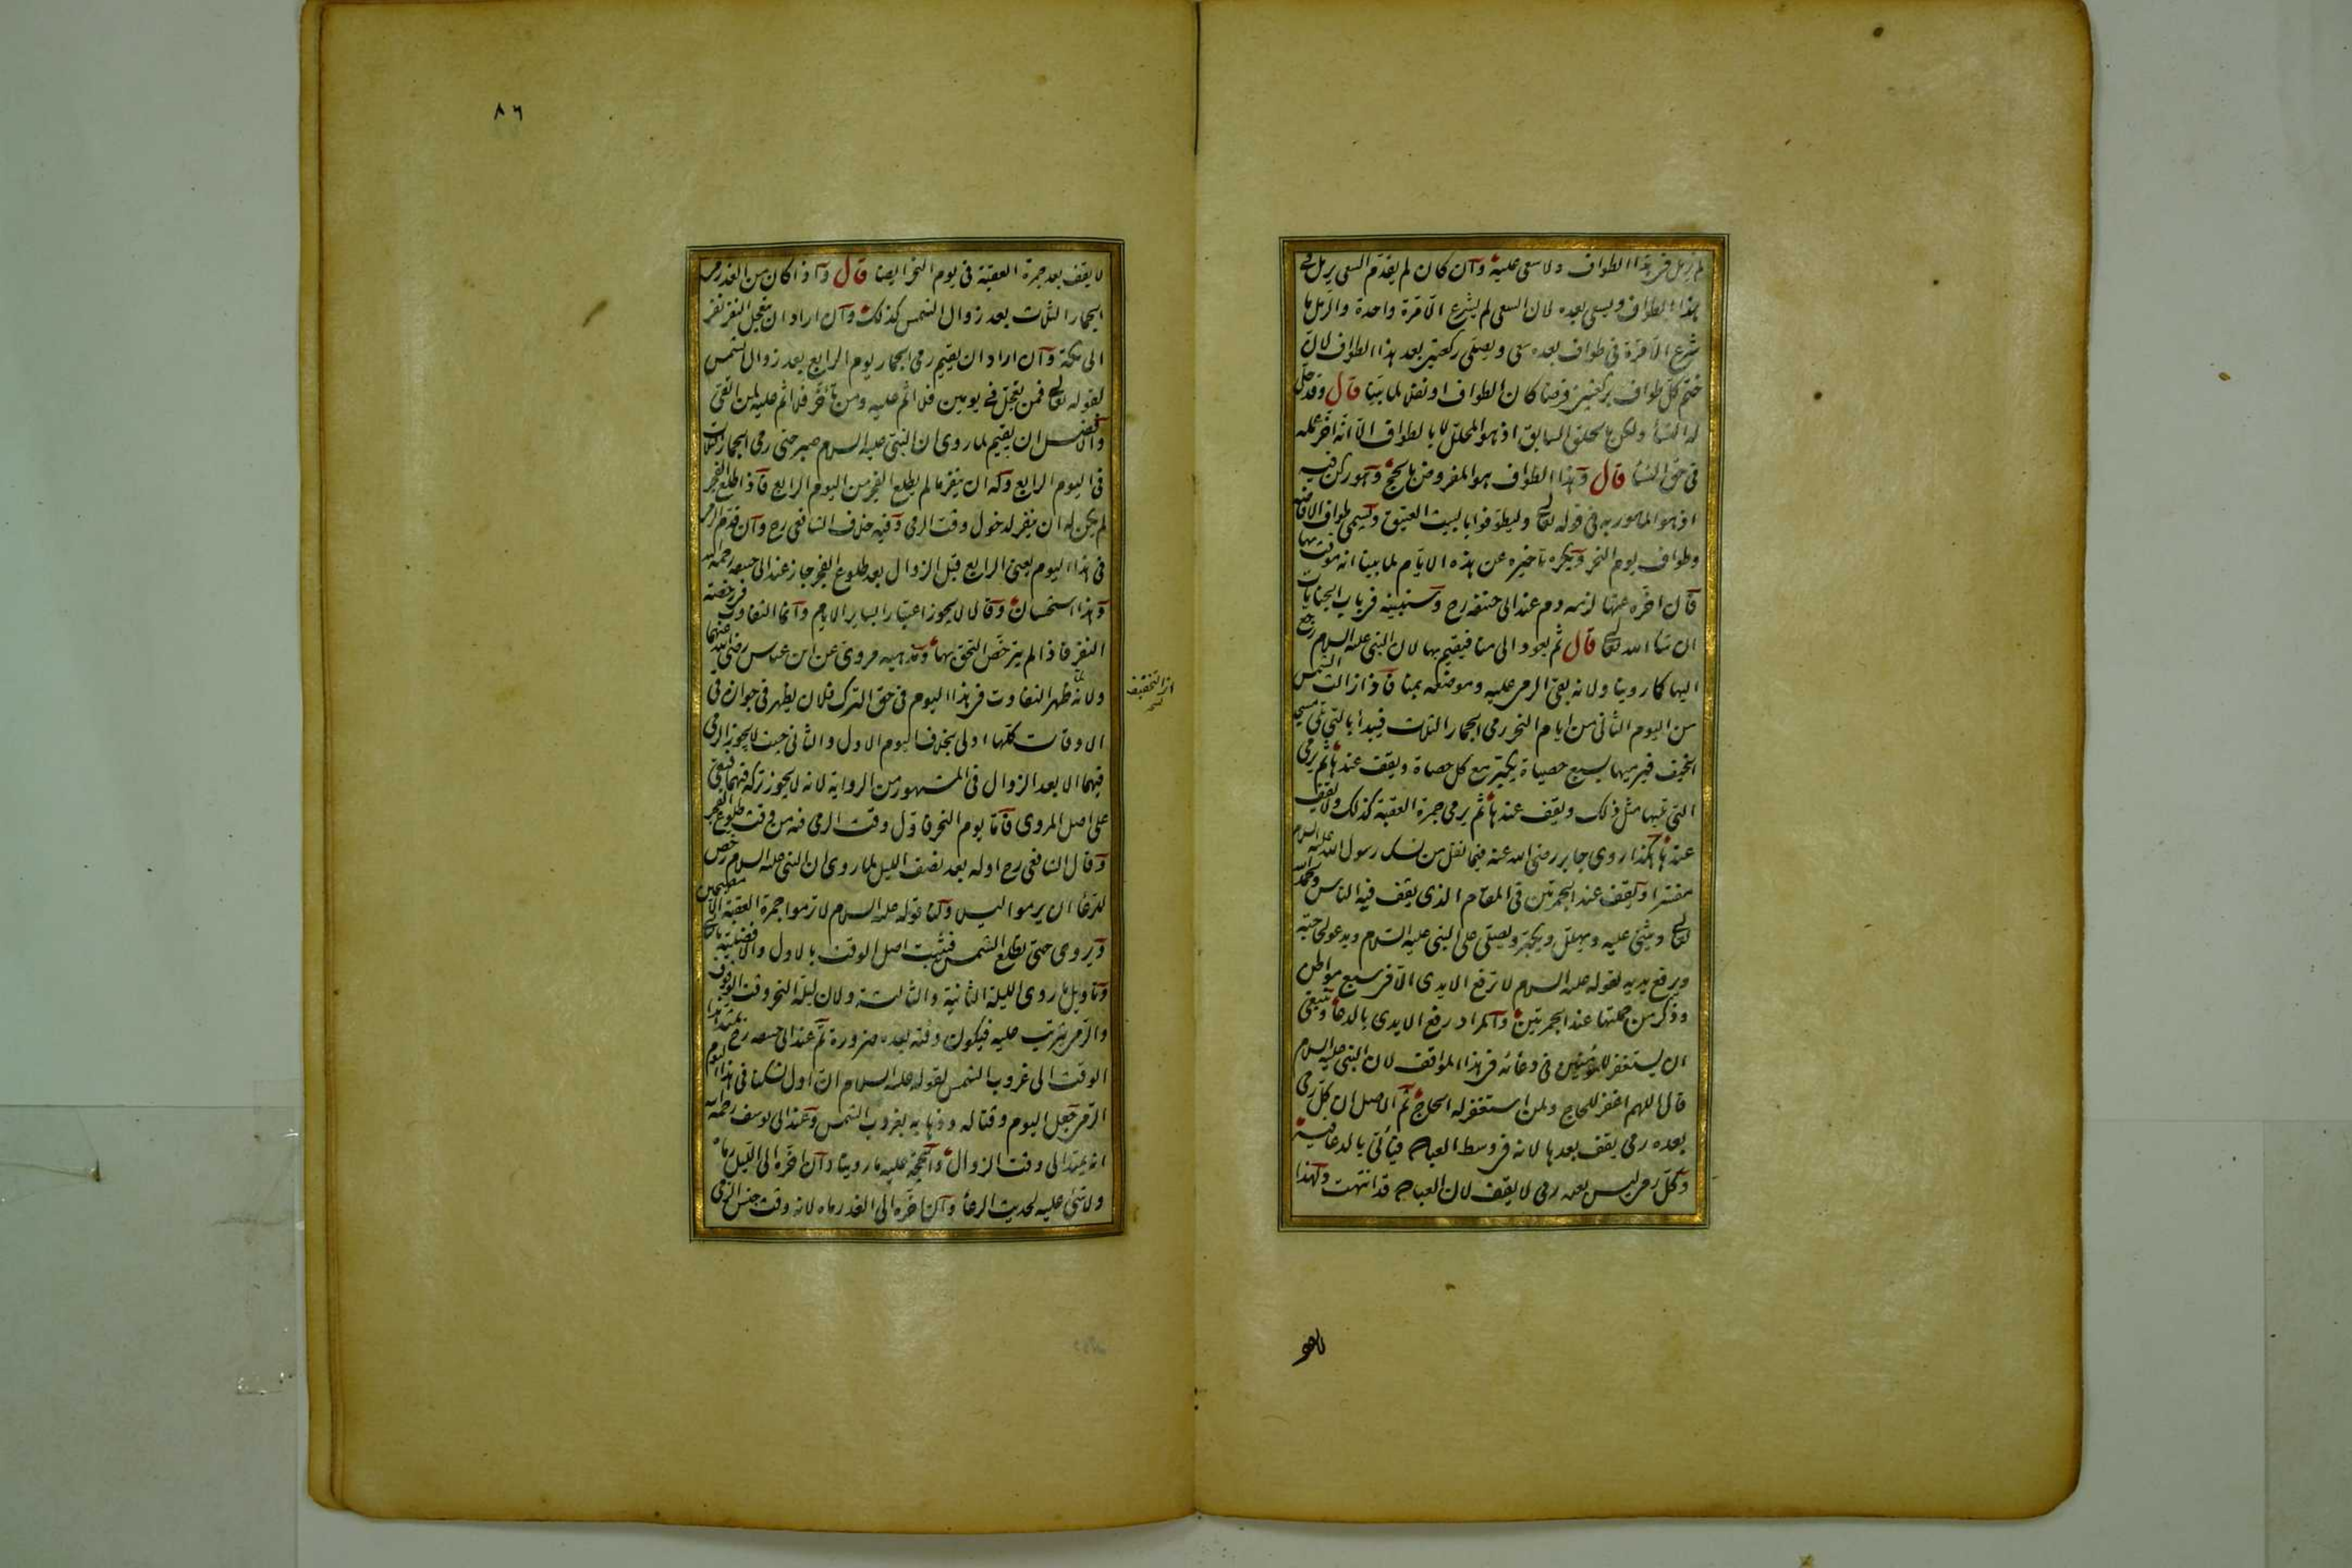 لم يرمل في هذا الطواف ولا سعي عليه وان كان لم يقدم السعي يرمل في
هذا الطواف ويسعى بعده لان السعي لم يشرع الا مرة واحدة والرمل ما
شرع الا مرة في طواف بعده سعي ويصلي ركعتين بعد هذا الطواف لان
ختم كل طواف بركعتين فرضا كان الطواف او نفلا لما بينا قال وقد حل
له النسأ ولكن بالحلق السابق اذ هو المحلل لا بالطواف الا انه اخر عمله
في حق النسأ قال وهذا الطواف هو المفروض بالحج وهو ركن فيه
اذ هو المامور به في قوله تعالى وليطوفوا بالبيت العتيق وتسمى طواف الافاضة
وطواف يوم النحر ويكره تاخيره عن هذه الايام لما بينا انه موقت بها
فان اخره عنها لزمه دم عند ابى حنيفة رح وسنبينه في باب الجنايات
ان شأ الله تعالى قال ثم يعود الى منا فيقيم بها لان النبي عليه السلام رجع
اليها كما روينا ولانه بقي الرمي عليه وموضعه بمنا فاذا زالت الشمس
من اليوم الثاني من ايام النحر رمى الجمار الثلاث فيبدأ بالتي تلي مسجد
الخيف فيرميها بسبع حصيات يكبر مع كل حصاة ويقف عندها ثم يرمي
التي تليها مثل ذلك ويقف عندها ثم يرمي جمرة العقبة كذلك ولا يقف
عندها هكذا روى جابر رضى الله عنه فيما نقل من نسك رسول الله عليه السلام
مفسرا ويقف عند الجمرتين في المقام الذي يقف فيه الناس ويحمد الله
تعالى ويثني عليه ويهلل ويكبر ويصلي على النبي عليه السلام ويدعو لحاجته
ويرفع يديه لقوله عليه السلام لا ترفع الايدي الا في سبع مواطن
وذكر من جملتها عند الجمرتين والمراد رفع الايدي بالدعأ وينبغي
ان يستغفر للمؤمنين في دعائه في هذا المواقف لان النبي عليه السلام
قال اللهم اغفر للحاج ولمن استغفر له الحاج ثم الاصل ان كل رمي
بعده رمي يقف بعدها لانه في وسط العبادة فيأتي بالدعأ فيه
وكل رمي ليس بعده رمي لا يقف لان العبادة قد انتهت ولهذا
لا يقف
٨٦
لا يقف بعد جمرة العقبة في يوم النحر ايضا قال واذا كان من الغد رمى
الجمار الثلاث بعد زوال الشمس كذلك وان اراد ان يتعجل النفر نفر
الى مكة وان اراد ان يقيم رمى الجمار يوم الرابع بعد زوال الشمس
لقوله تعالى فمن تعجل في يومين فلا اثم عليه ومن تأخر فلا اثم عليه لمن اتقى
والافضل ان يقيم لما روى ان النبي عليه السلام صبر حتى رمى الجمار الثلاث
في اليوم الرابع وله ان ينفر ما لم يطلع الفجر من اليوم الرابع فاذا طلع الفجر
لم يكن له ان ينفر لدخول وقت الرمي وفيه خلاف الشافعي رح وان قدم الرمي
في هذا اليوم يعني الرابع قبل الزوال بعد طلوع الفجر جاز عند ابى حنيفة رحمه الله
وهذا استحسان وقالا لا يجوز اعتبارا بساير الايام وانما التفاوت في رخصة
النفر فاذا لم يترخص التحق بها ومذهبه مروى عن ابن عباس رضى الله عنهما
ولانه ظهر التفاوت في هذا اليوم في حق الترك فلان يظهر في جوازه في
اثر التخفيف
الاوقات كلها اولى بخلاف اليوم الاول والثاني حيث لا يجوز الرمي
فيهما الا بعد الزوال في المشهور من الرواية لانه لا يجوز تركه فيهما فبقي
على اصل المروى فاما يوم النحر فاول وقت الرمي فيه من وقت طلوع الفجر
وقال الشافعي رح اوله بعد نصف الليل لما روى ان النبي عليه السلام رخص
للرعأ ان يرموا ليلا ولنا قوله عليه السلام لا ترموا جمرة العقبة الا مصبحين
ويروى حتى تطلع الشمس فيثبت اصل الوقت بالاول والافضلية بالثاني
وتاويل ما روى الليلة الثانية والثالثة ولان ليلة النحر وقت الوقوف
والرمي يترتب عليه فيكون وقته بعده ضرورة ثم عند ابى حنيفة رح يمتد هذا
الوقت الى غروب الشمس لقوله عليه السلام ان اول نسكنا في هذا اليوم
الرمي جعل اليوم وقتا له وذهابه بغروب الشمس وعند ابى يوسف رحمه الله
انه يمتد الى وقت الزوال والحجة عليه ما روينا وان اخره الى الليل رماه
ولا شئ عليه لحديث الرعأ وان اخره الى الغد رماه لانه وقت جنس الرمي